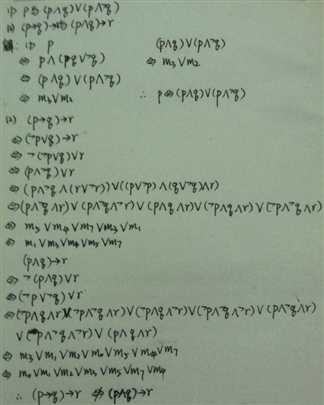 (1) p⇔(p∧q)∨(p∧¬q)
(2) (p→q)→r⇔(p∧q)→r
解: (1) p (p∧q)∨(p∧¬q)
⇔ p∧(q∨¬q) ⇔ m3∨m2
⇔ (p∧q)∨(p∧¬q)
⇔ m3∨m2 ∴ p⇔(p∧q)∨(p∧¬q)
(2) (p→q)→r
⇔(¬p∨q)→r
⇔ ¬(¬p∨q)∨r
⇔ (p∧¬q)∨r
⇔ (p∧¬q∧(r∨¬r))∨((p∨¬p)∧(q∨¬q)∧r)
⇔(p∧¬q∧r)∨(p∧¬q∧¬r)∨(p∧q∧r)∨(¬p∧q∧r)∨(¬p∧¬q∧r)
⇔ m5∨m4∨m7∨m3∨m1
⇔ m1∨m3∨m4∨m5∨m7
(p∧q)→r
⇔ ¬(p∧q)∨r
⇔(¬p∨¬q)∨r
⇔(¬p∧q∧r)∨(¬p∧¬q∧r)∨(¬p∧q∧¬r)∨(¬p∧¬q∧¬r)∨(p∧¬q∧r)
∨(p∧¬q∧¬r)∨(p∧q∧r)
⇔ m3∨m1∨m2∨m0∨m5∨m4∨m7
⇔ m0∨m1∨m2∨m3∨m5∨m7∨m4
∴ (p→q)→r ⇎ (p∧q)→r